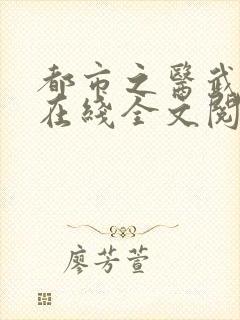 都市之醫武
在綫全文閱
廖芳萱